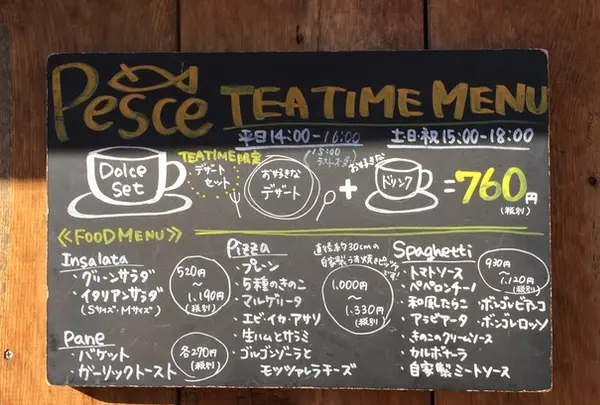 Pesce TEA TIME MENU
平日14:00-16:00 土日・祝15:00-18:00
(15:00 ラストオーダー)
Dolce Set
TEATIME限定
デザートセット
お好きな
デザート
+
お好きな
ドリンク
=760円
(税別)
《FOOD MENU》
Insalata
・グリーンサラダ
・イタリアンサラダ
(Sサイズ・Mサイズ)
520円
〜
1,190円
(税別)
Pane
・バケット
・ガーリックトースト
各270円
(税別)
Pizza
直径約30cmの
自家製うす焼きピッツァです!
・プレーン
・5種のきのこ
・マルゲリータ
・エビ・イカ・アサリ
・生ハムとサラミ
・ゴルゴンゾーラと
モッツァレラチーズ
1,000円
〜
1,330円
(税別)
Spaghetti
・トマトソース
・ペペロンチーノ
・和風たらこ
・アラビアータ
・きのこのクリームソース
・カルボナーラ
・自家製ミートソース
・ボンゴレビアンコ
・ボンゴレロッソ
930円
〜
1,120円
(税別)